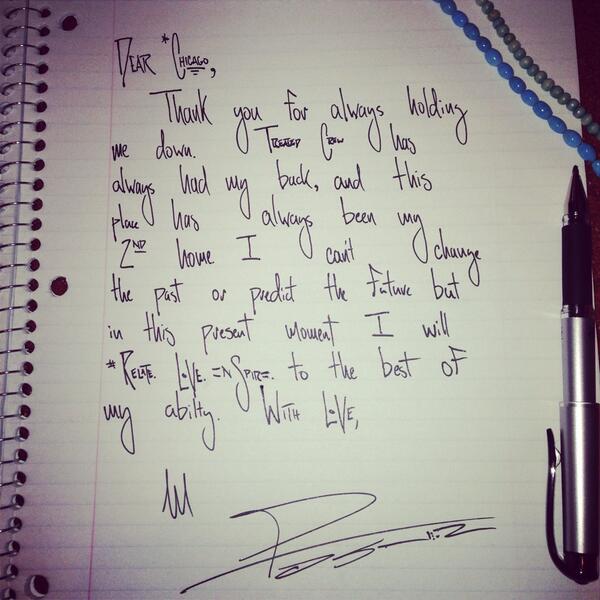 DEAR *CHICAGO,
Thank you for always holding
me down. TREATED CREW has
always had my back, and this
place has always been my
2ND home I can't change
the past or predict the future but
in this present moment I will
*RELATE. LOVE. =NSPIRE. to the best of
my abilty. WITH LOVE,